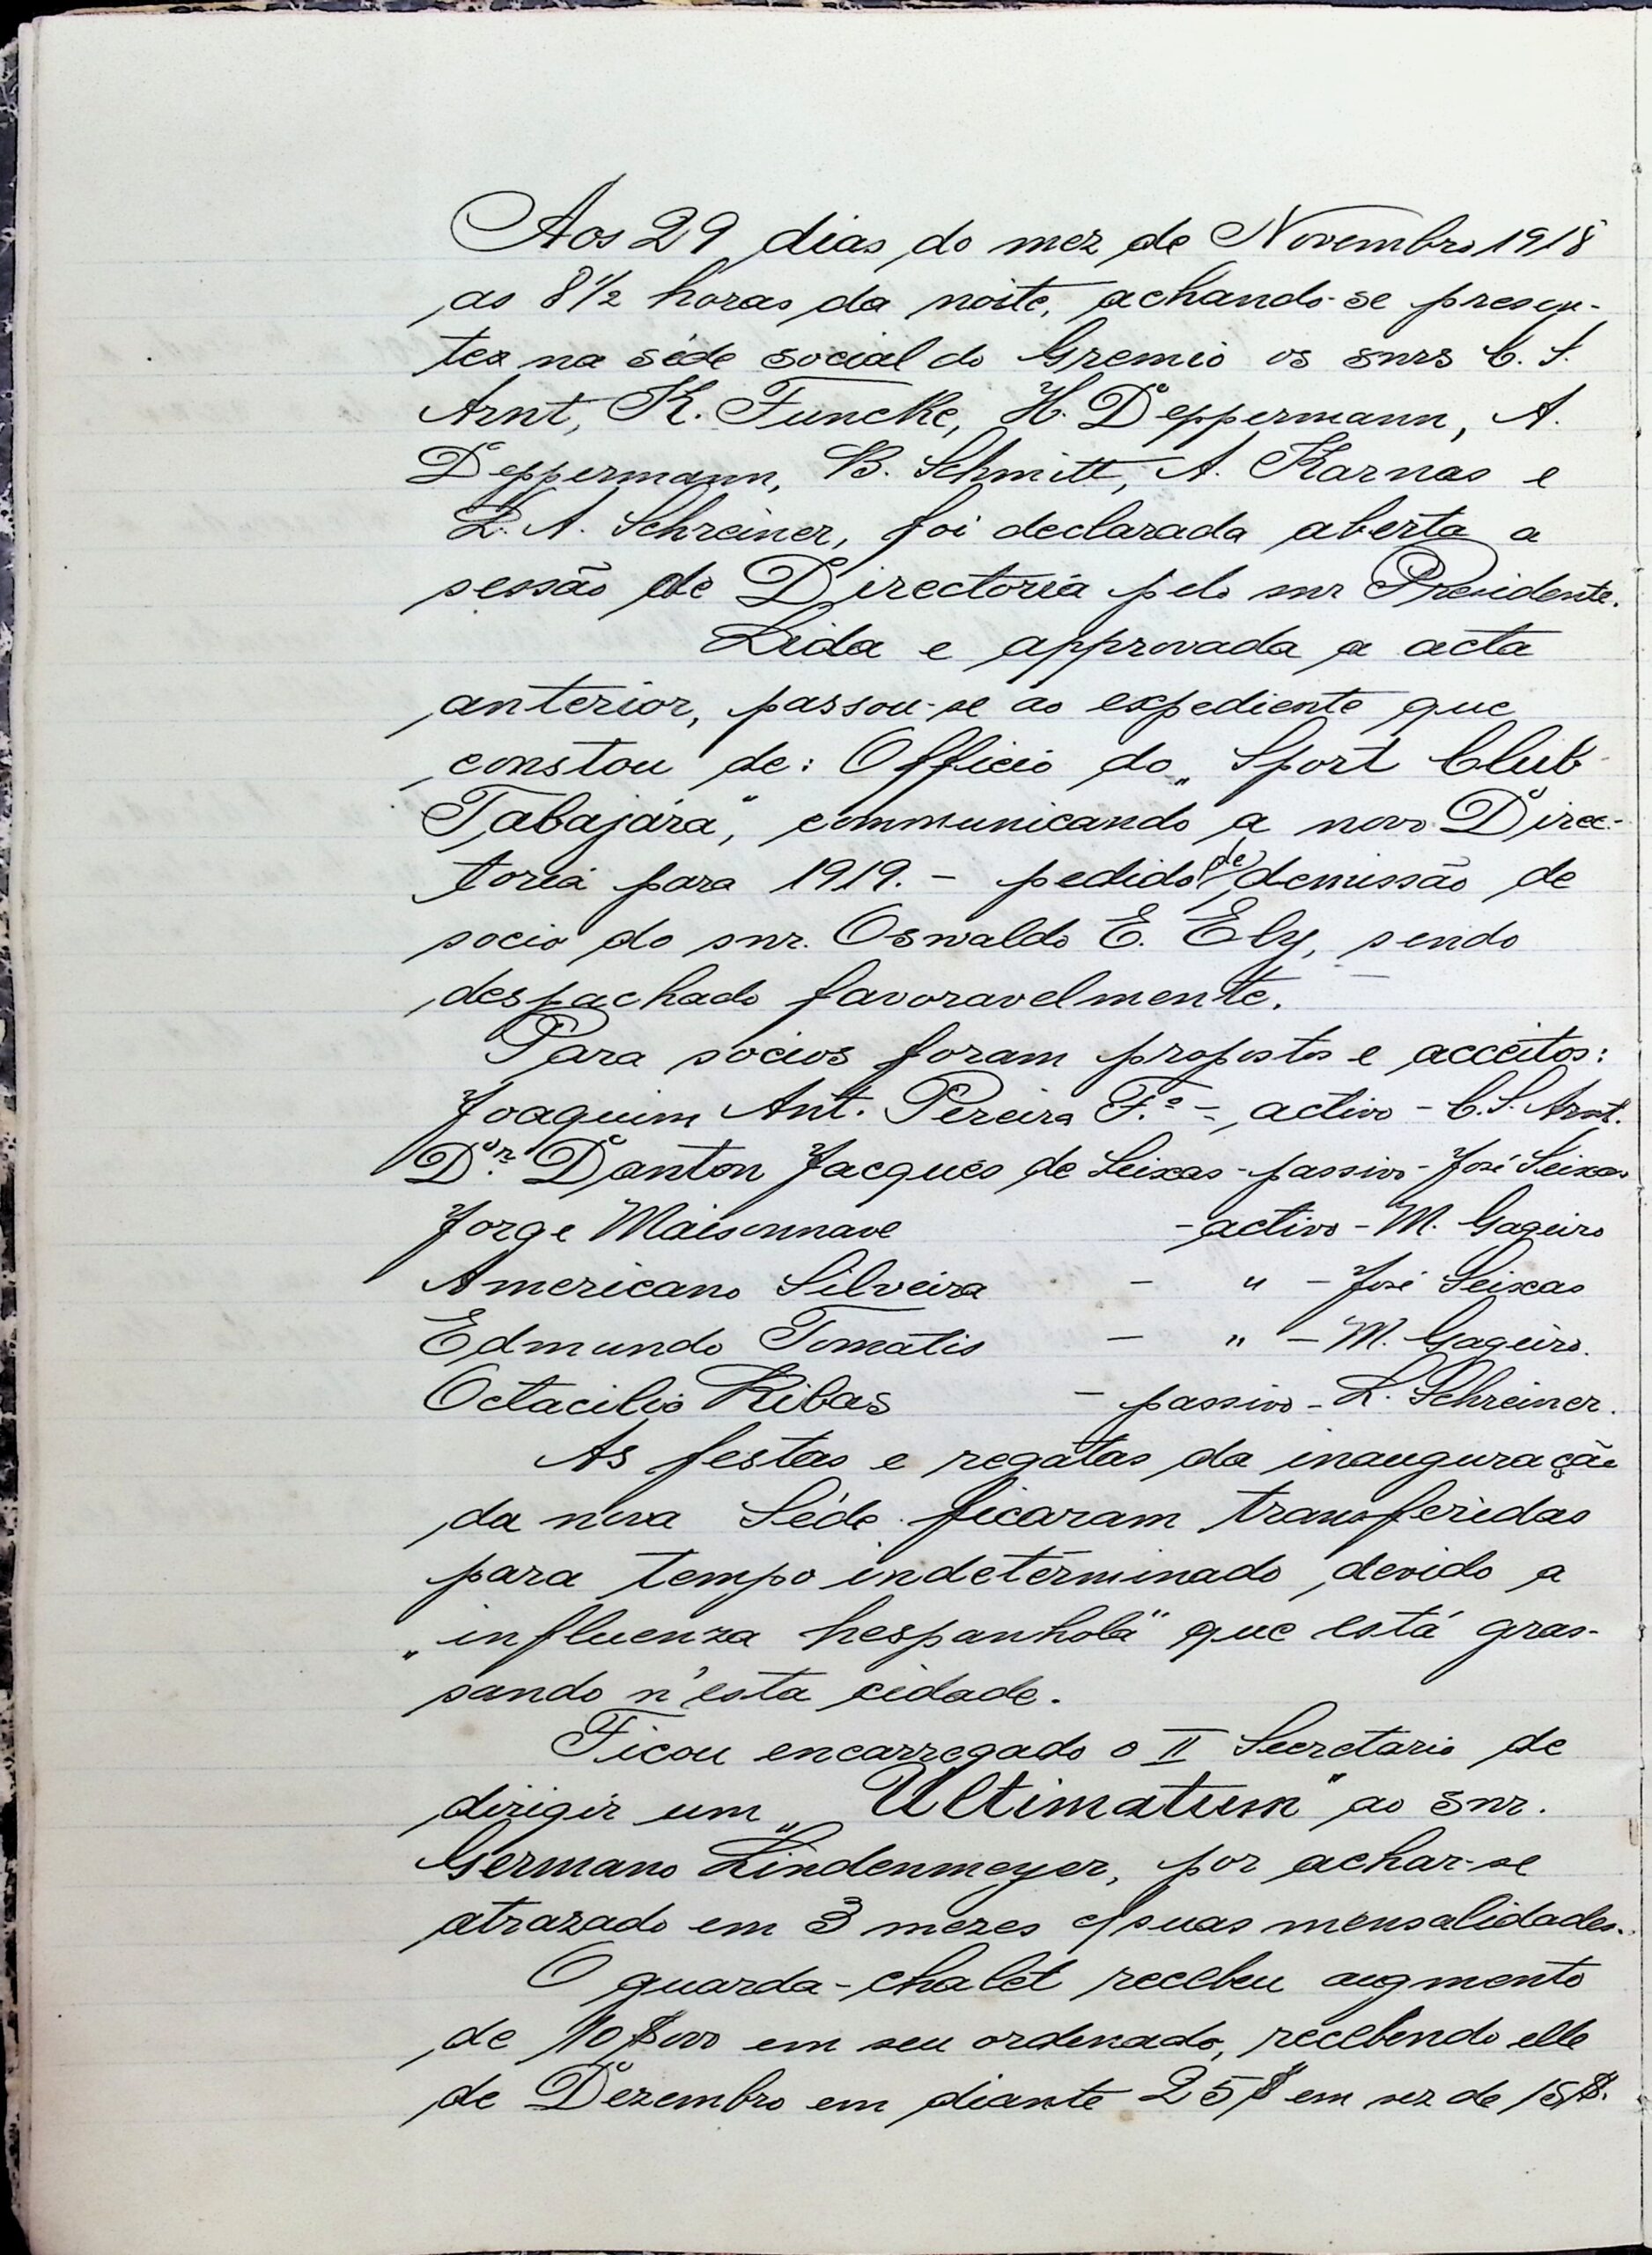 Aos 29 dias do mez de Novembro 1918
as 8 1/2 horas da noite, achando-se presen-
tes na séde social do Gremio os snrs C. S.
Arnt, K. Funcke, H. Deppermann, A.
Deppermann, B. Schmitt, A. Karnas e
L. A. Schreiner, foi declarada aberta a
sessão de Directoria pelo snr Presidente.
Lida e approvada a acta
anterior, passou-se ao expediente que
constou de: Officio do „Sport Club
Tabajára", communicando a nova Direc-
toria para 1919. - pedido de demissão de
socio do snr. Oswaldo E. Ely, sendo
despachado favoravelmente.
Para socios foram propostos e acceitos:
Joaquim Ant. Pereira F.º - activo - C. S. Arnt.
Dr. Danton Jacques de Seixas - passivo - José Seixas
Jorge Maisonnave - activo - M. Gageiro
Americano Silveira - " - José Seixas
Edmundo Tomatis - " - M. Gageiro.
Octacilio Ribas - passivo - L. Schreiner.
As festas e regatas da inauguração
da nova Séde ficaram transferidas
para tempo indeterminado, devido a
„influenza hespanhola" que está gras-
sando n'esta cidade.
Ficou encarregado o II Secretario de
dirigir um „Ultimatum" ao snr.
Germano Lindenmeyer, por achar-se
atrazado em 3 mezes c/ suas mensalidades.
O guarda-chalet recebeu augmento
de 10$000 em seu ordenado, recebendo elle
de Dezembro em diante 25$ em vez de 15$.